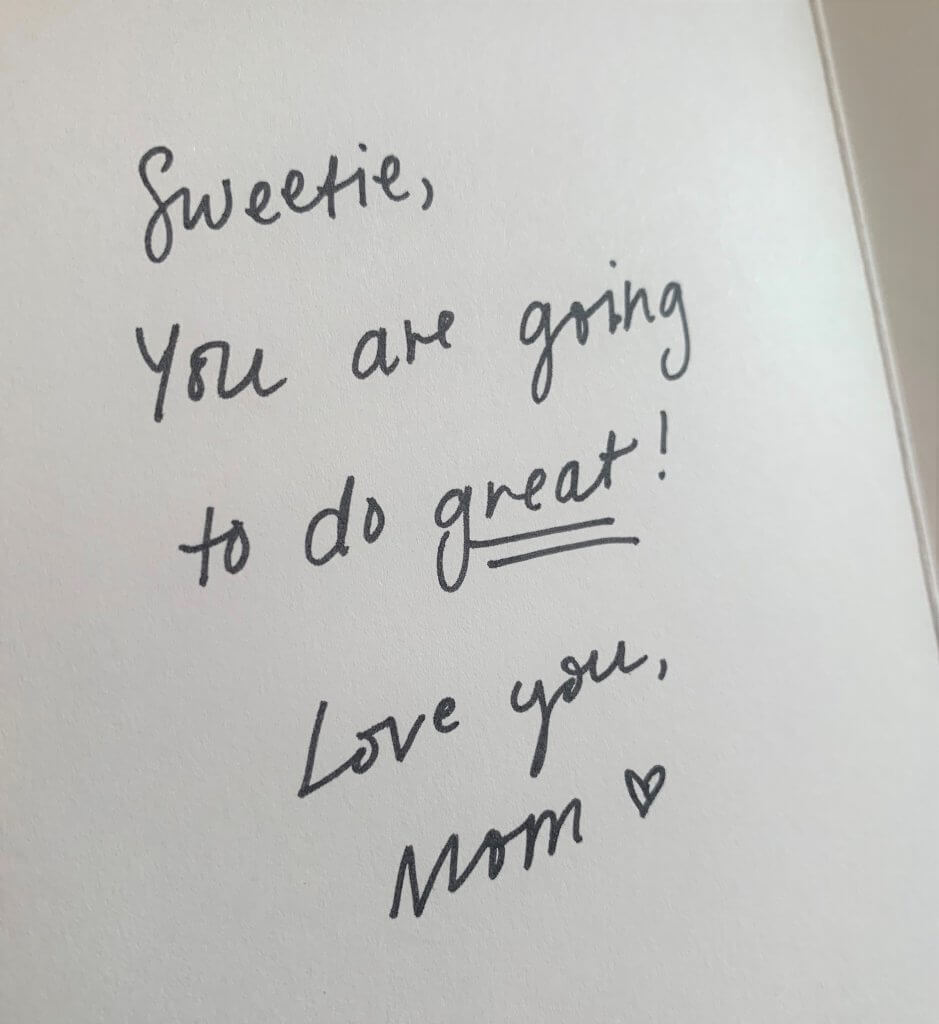 Sweetie,
You are going
to do great!
Love you,
Mom ♡